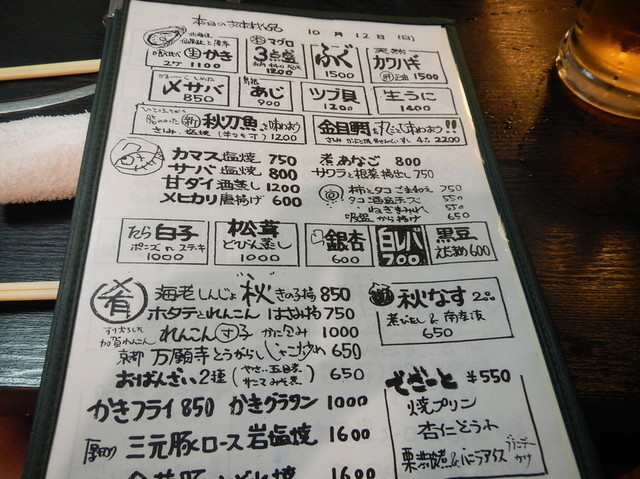 本日のおすすめ品 10月12日(日)
北海道
生 かき
2ケ 1100
生マグロ
3点盛
1200
ふぐ
1500
天然
カワハギ
肝正油 1500
〆サバ
850
あじ
900
ツブ貝
1200
生うに
1400
脂ののった 新 秋刀魚を味わおう
さしみ 塩焼 1200
金目鯛を丸ごと味わおう!!
2200
カマス塩焼 750
サバ塩焼 800
甘ダイ酒蒸し 1200
メヒカリ唐揚げ 600
煮あなご 800
サワラと根菜 750
柿とタコごまあえ 750
タコ 酒盗キムチ 550
ねぎまみれ 550
吸盤から揚げ 650
たら白子
ポン酢 or ステキ
1000
松茸
どびん蒸し
1000
銀杏
600
白レバ
700
黒豆
600
肴
海老しんじょ "秋" きのこ揚 850
ホタテとれんこん はさみや 750
すりおろした
加賀れんこん
れんこん かに包み 1000
京都 万願寺とうがらし じゃこ炒め 650
おばんざい2種 650
かきフライ 850 かきグラタン 1000
厚切り 三元豚ロース岩塩焼 1600
1600
秋なす
煮びたし & 南蛮漬
650
でざーと ¥550
焼プリン
杏仁どうふ
栗渋皮煮&バニラアイス ブランデーかけ